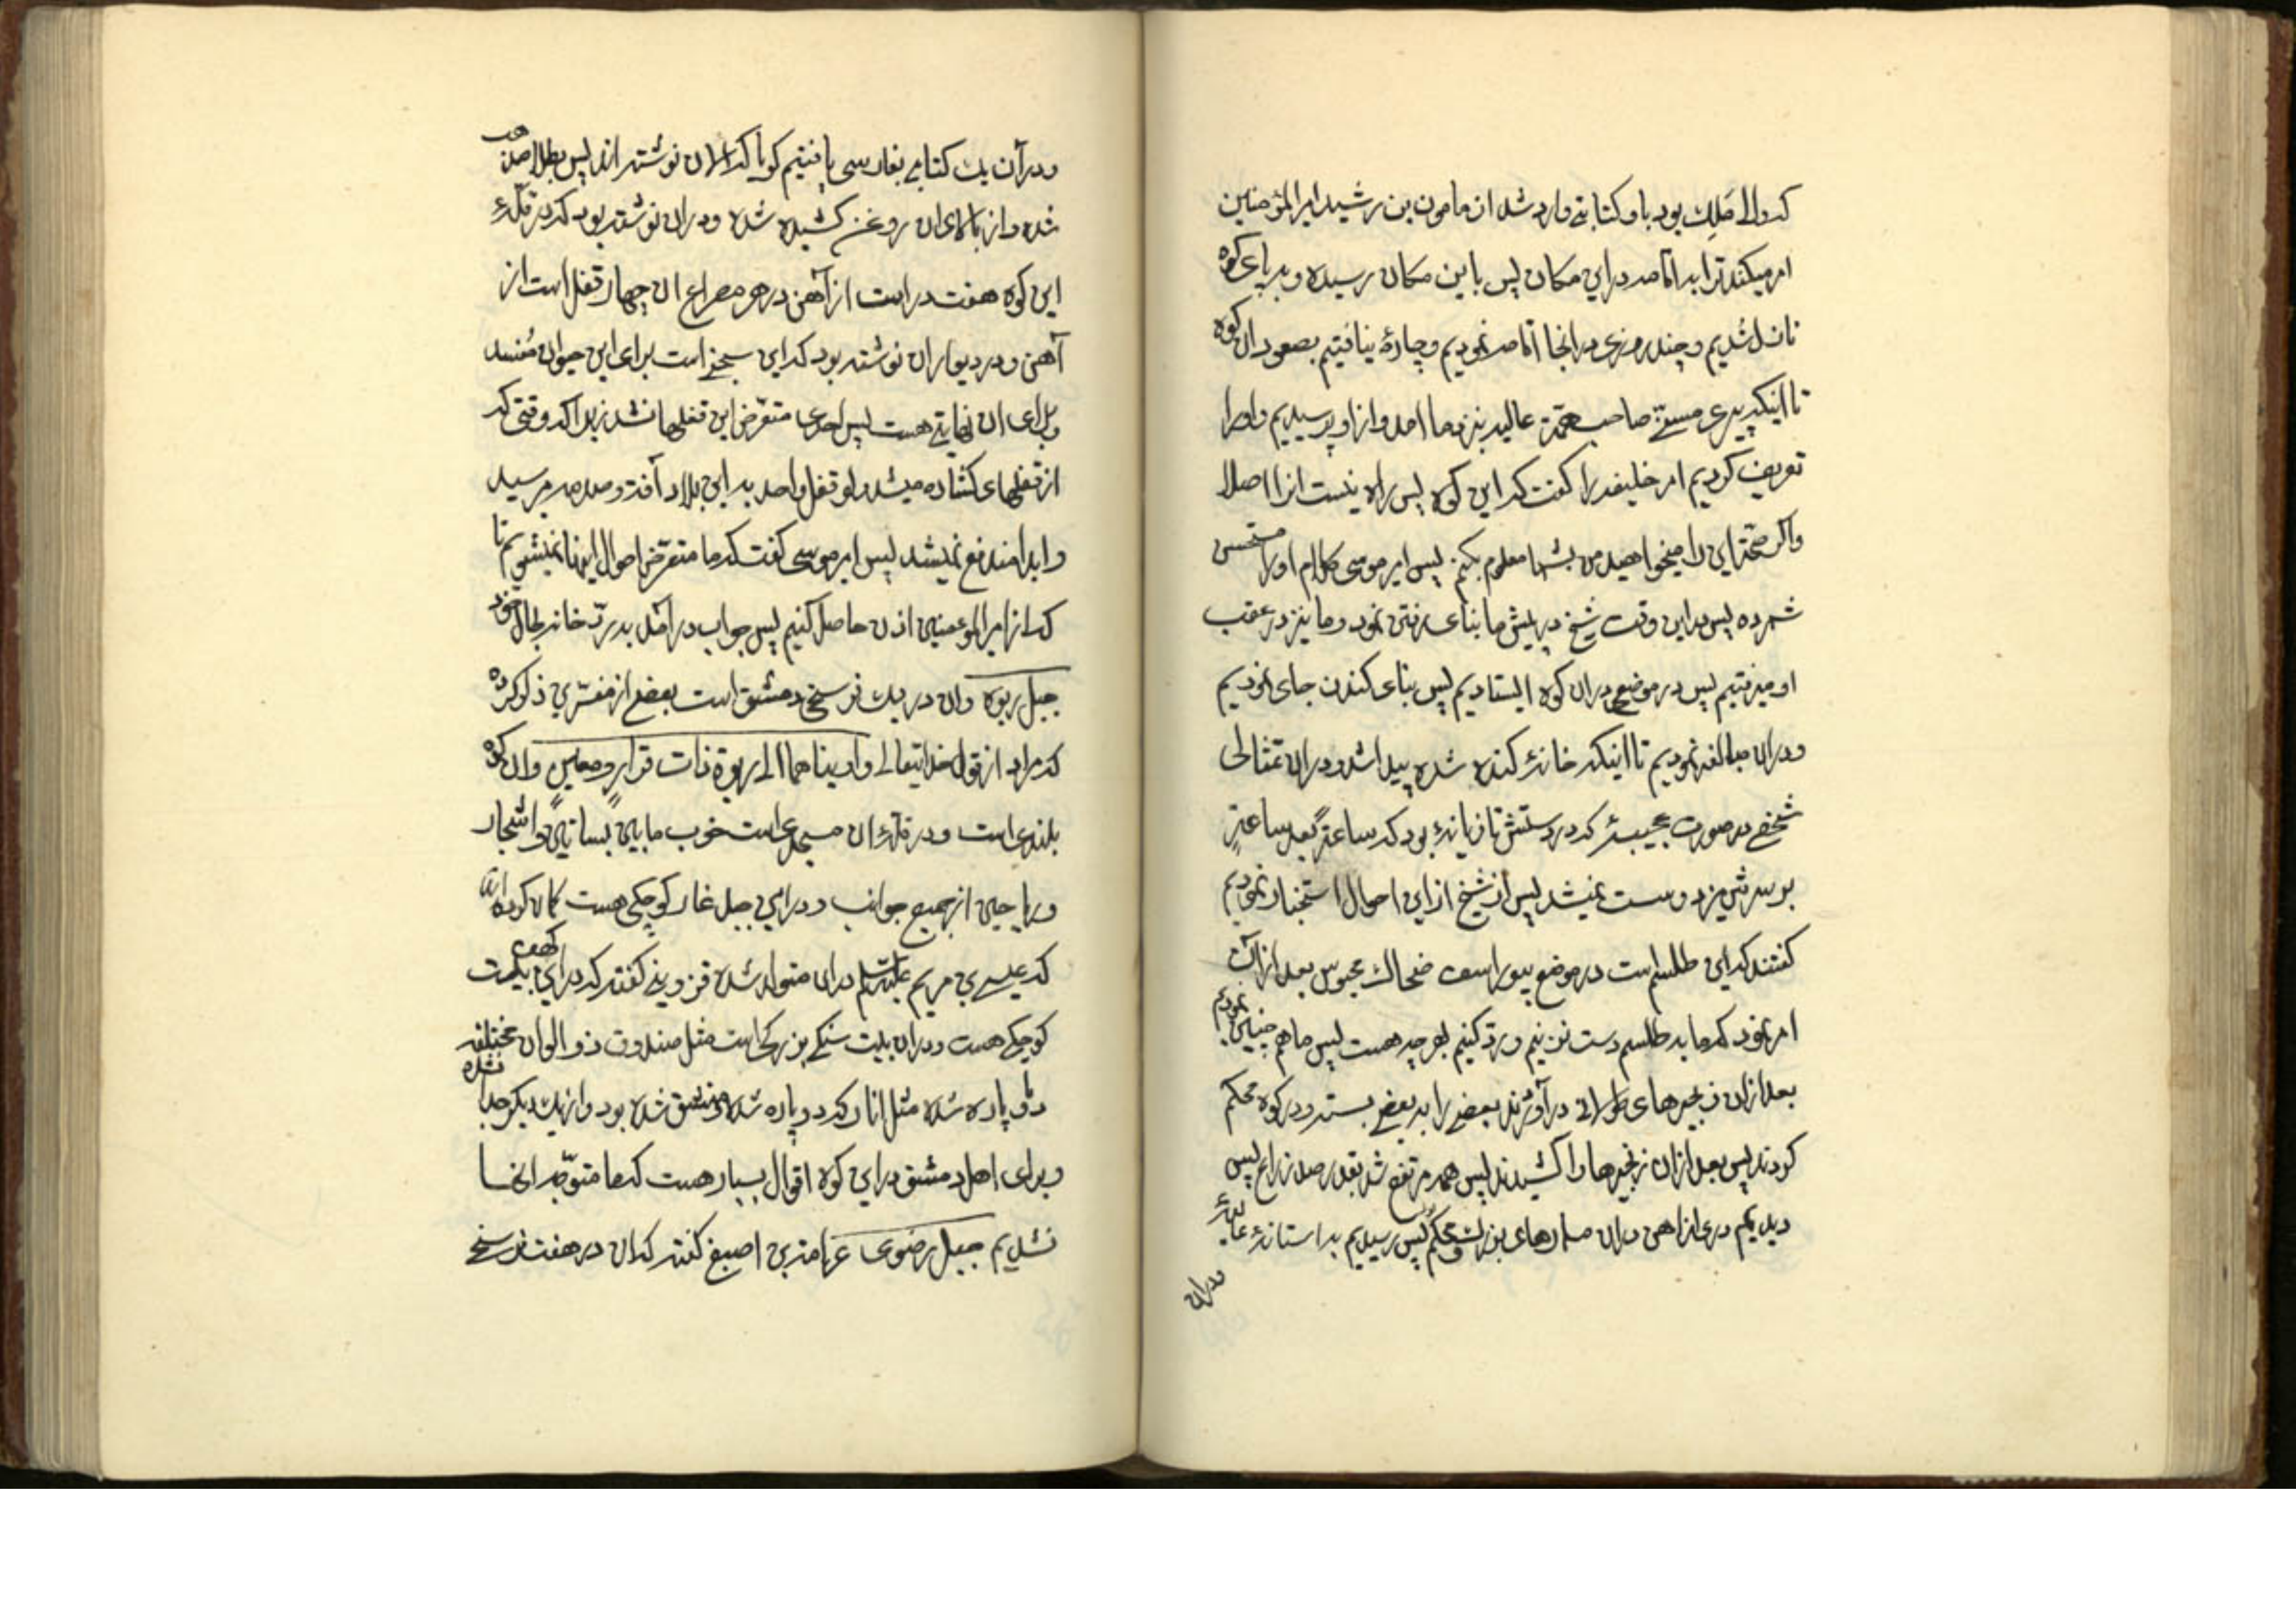 که والی مَلِک بود با او کتابتی وارد شد از مامون بن رشید امیر المؤمنین
امر میکند ترا به اقامه در این مکان پس باین مکان رسیده و بر پای کوه
نازل شدیم و چند روزی در انجا اقامه نمودیم و چارهٔ نیافتیم بصعود ان کوه
تا اینکه پیری مسنّ صاحب همّة عالیه بنزد ما امد و از او پرسیدیم و او را
تعریف کردیم امر خلیفه را کفت که این کوه پس راه نیست انرا اصلا
واکر صحّة این را میخواهید من بشما معلوم بکنم پس امیر موسی کلام او را مستحسن
شمرده پس در این وقت شیخ در پیش ما بنای رفتن نمود و ما نیز در عقب
او میرفتیم پس در موضعی در ان کوه ایستادیم پس بنای کندن جای نمودیم
و در ان مبالغه نمودیم تا اینکه خانهٔ کنده شده پیدا شد و در ان تمثالی
شخصی در صورت عجیبهٔ که در دستش تازیانهٔ بود که ساعةً بعد ساعةٍ
بر سرش میزد و سست نمیشد پس از شیخ از این احوال استخبار نمودیم
کفتند که این طلسم است در موضع بیوراسف ضحاک محبوس بعد از آن
امر نمود که ما به طلسم دست نزنیم و ردّ کنیم بهر چه هست پس ما هم چنین نمودیم
بعد از ان زنجیرهای طولانی در آوردند بعضی را به بعضی بستند و در کوه محکم
کردند پس بعد از ان زنجیرها را کشیدند پس همه مرتفع شد بقدر صد زراع پس
دیدیم دری از اهن در ان مسمارهای بزرک و محکم پس رسیدیم به استانهٔ
و در ان
و در آن یک کتابی بفارسی یافتیم کویا که الان نوشته اند پس بطلا
شده و از بالای ان روغن کشیده شده و در ان نوشته بود که در قلّهٔ
این کوه هفت در است از آهن در هر مصراع ان چهار قفل است از
آهن و در دیوار ان نوشته بود که این سجن است برای این حیوان مُفسد
و برای ان نهایتی هست پس احدی متعرّض این قفلها نشد زیرا که وقتی که
از قفلهای کشاده میشد ولو قفل واحد به این بلاد آفت و صدمه میرسید
و ابدا مندفع نمیشد پس امیر موسی کفت که ما متعرّض احوال اینها نمیشویم تا
که از امیر المؤمنین اذن حاصل کنیم پس جواب در آمد به ردّ خانه بحال خود
جبل ربوه وان در یک فرسخ دمشق است بعضی از مفسّرین ذکر کرده
که مراد از قول خدایتعالی و اوینا هما الی ربوة ذات قرار و معین وان کوه
بلندی است و در قلّهٔ ان مسجدی است خوب مابین بساتین و اشجار
و ریاحین از جمیع جوانب و در این جبل غار کوچکی هست کمان کرده اند
که عیسی بن مریم علیه السلم در ان متولد شده قزوینی کفته که در این یک کهف
کوچکی هست و در ان یک سنکی بزرکی است مثل صندوق ذو الوان مختلفه
دو پاره شده مثل انار که دو پاره شده و منشق شده بود و از یکدیکر جدا نشده
و برای اهل دمشق در این کوه اقوال بسیار هست که ما متوجّه انها
نشدیم جبل رضوی عرامة بن اصبغ کفته که ان در هفت فرسخ